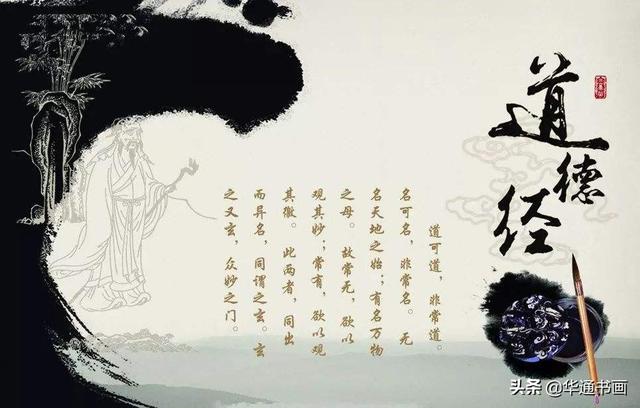 道德经
道可道，非常道。
名可名，非常名。无
名天地之始；有名万物
之母。故常无，欲以
观其妙；常有，欲以观
其徼。此两者，同出
而异名，同谓之玄。玄
之又玄，众妙之门。
头条 @华通书画